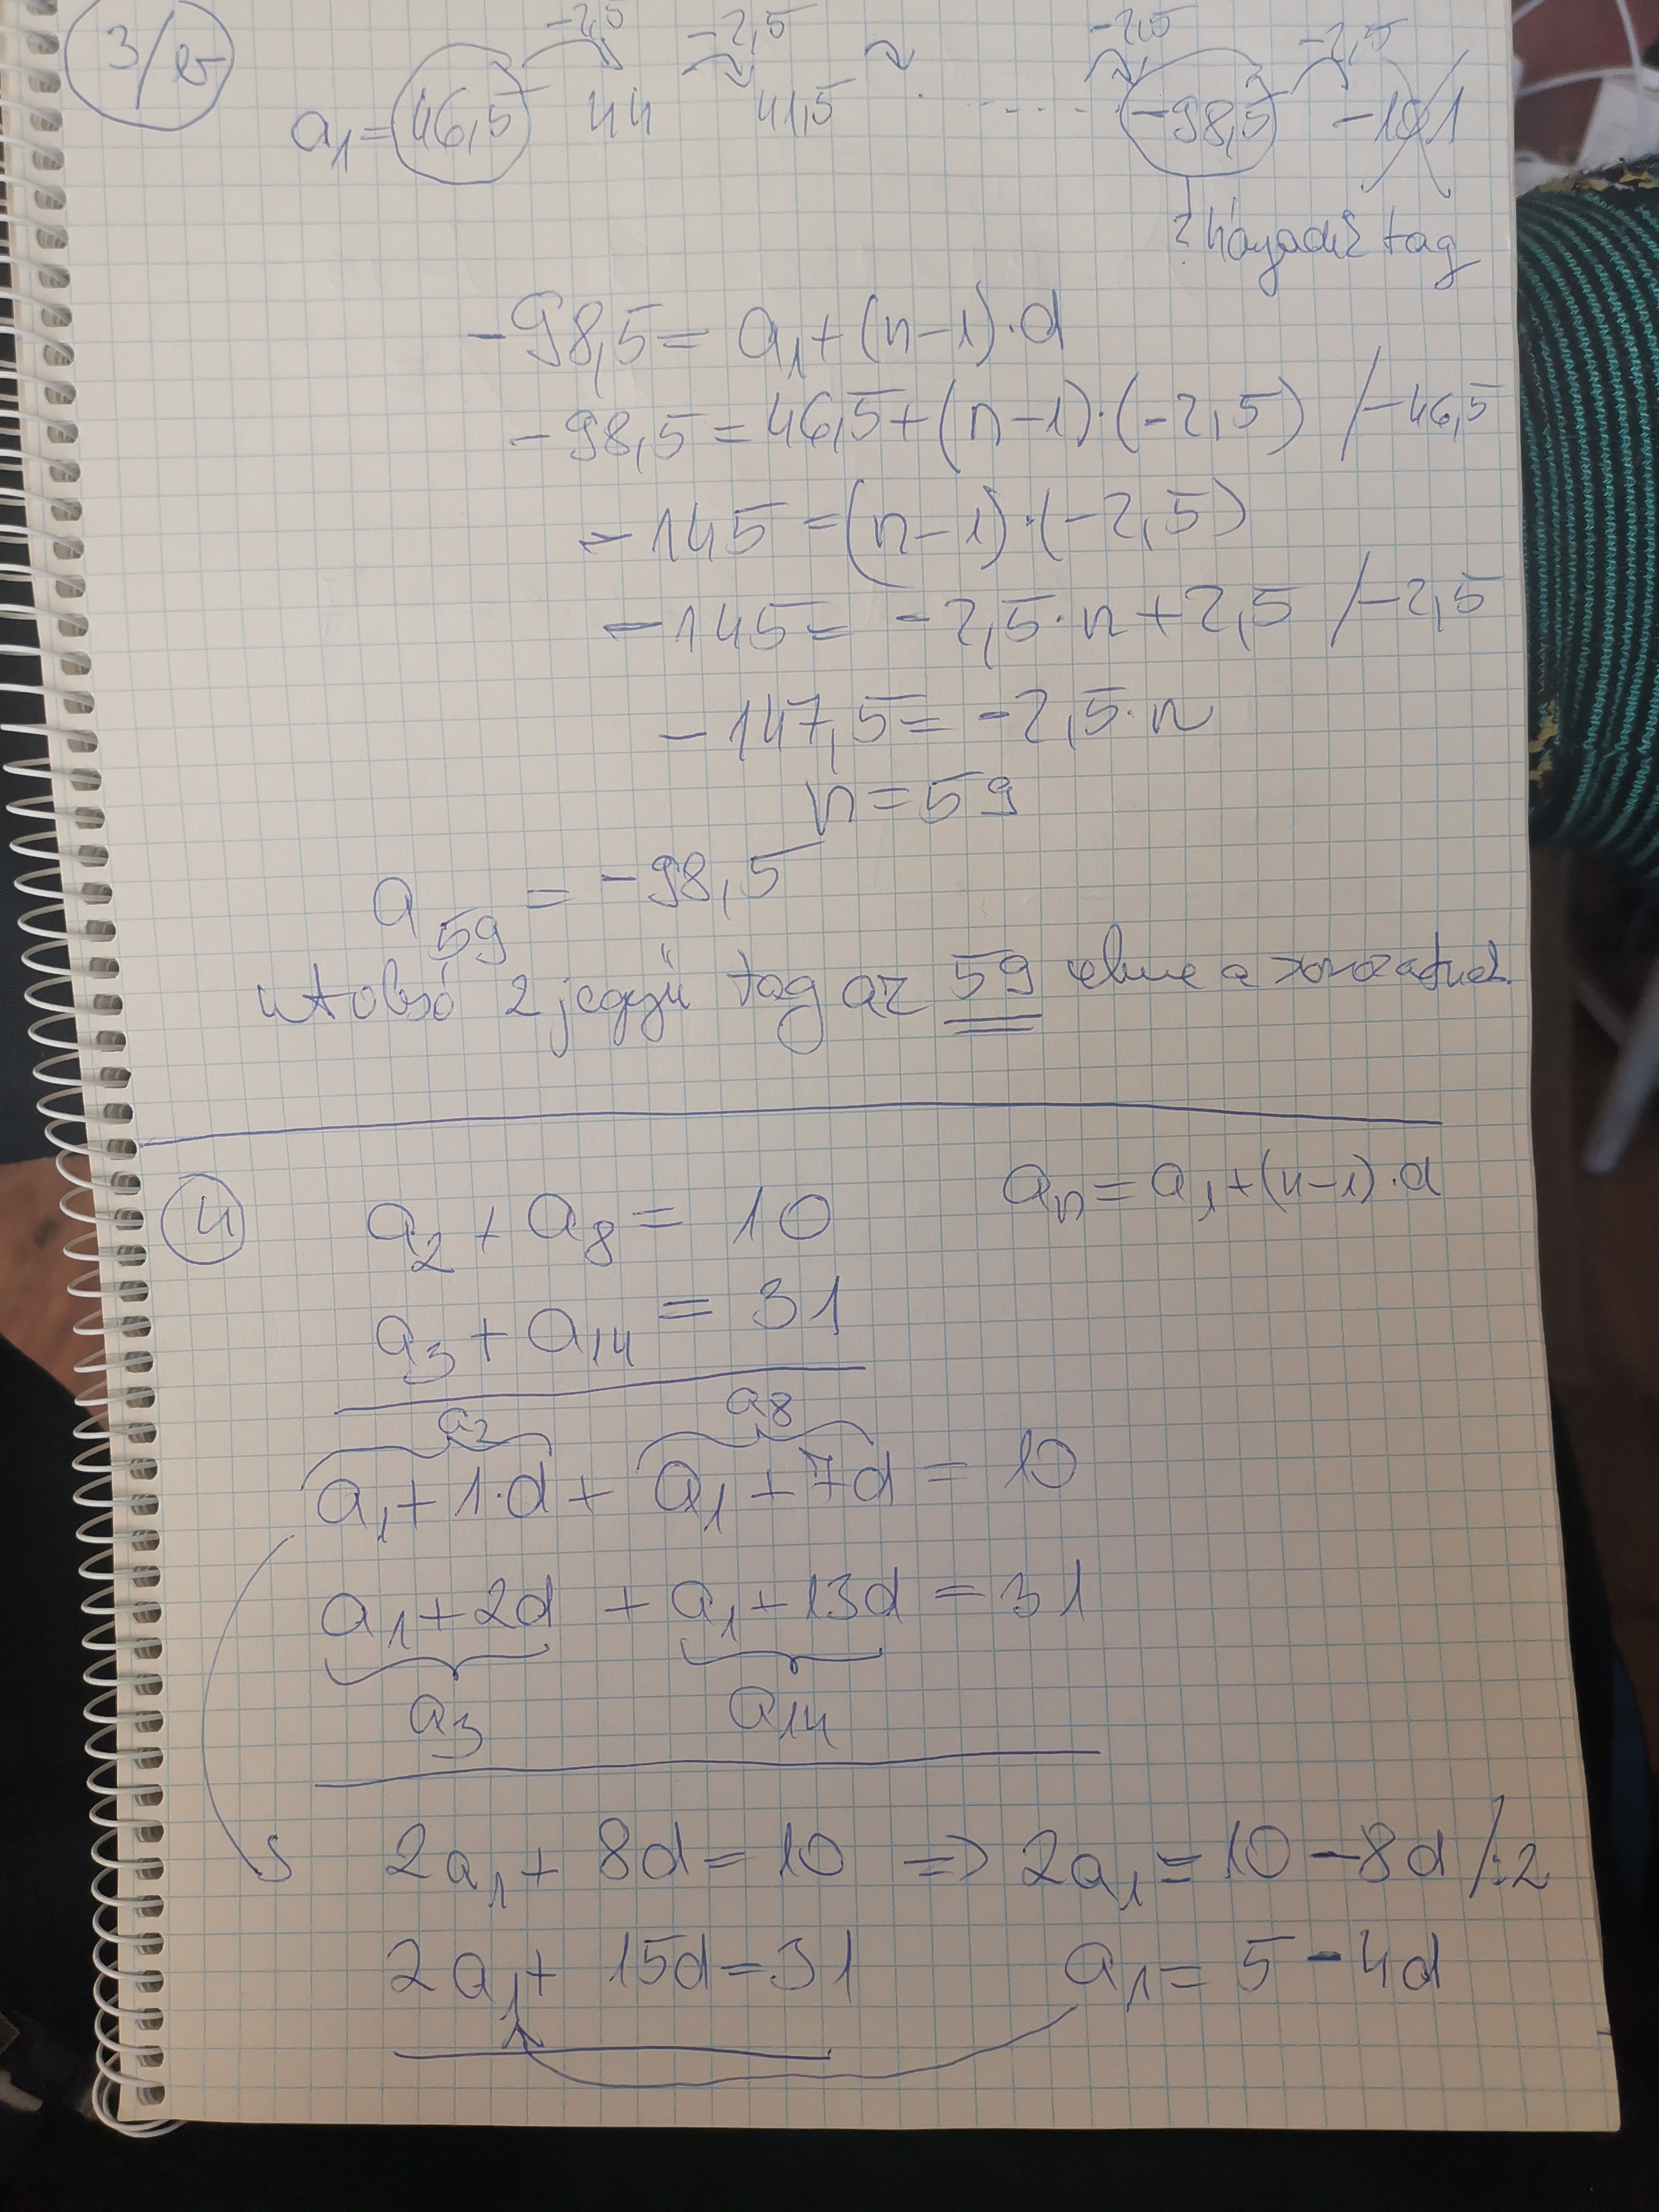 3/b
-2,5 -2,5 -2,5 -2,5
a₁ = 46,5 44 41,5 . - - - - . -98,5 -101
? hányadik tag
-98,5 = a₁ + (n-1)·d
-98,5 = 46,5 + (n-1)·(-2,5) /-46,5
-145 = (n-1)·(-2,5)
-145 = -2,5·n + 2,5 /-2,5
-147,5 = -2,5·n
n = 59
a₅₉ = -98,5
utolsó 2 jegyű tag az 59 eleme a sorozatnak.
4
a₂ + a₈ = 10 aₙ = a₁ + (n-1)·d
a₃ + a₁₄ = 31
a₂ a₈
a₁ + 1·d + a₁ + 7d = 10
a₁ + 2d + a₁ + 13d = 31
a₃ a₁₄
2a₁ + 8d = 10 => 2a₁ = 10 - 8d /:2
2a₁ + 15d = 31 a₁ = 5 - 4d